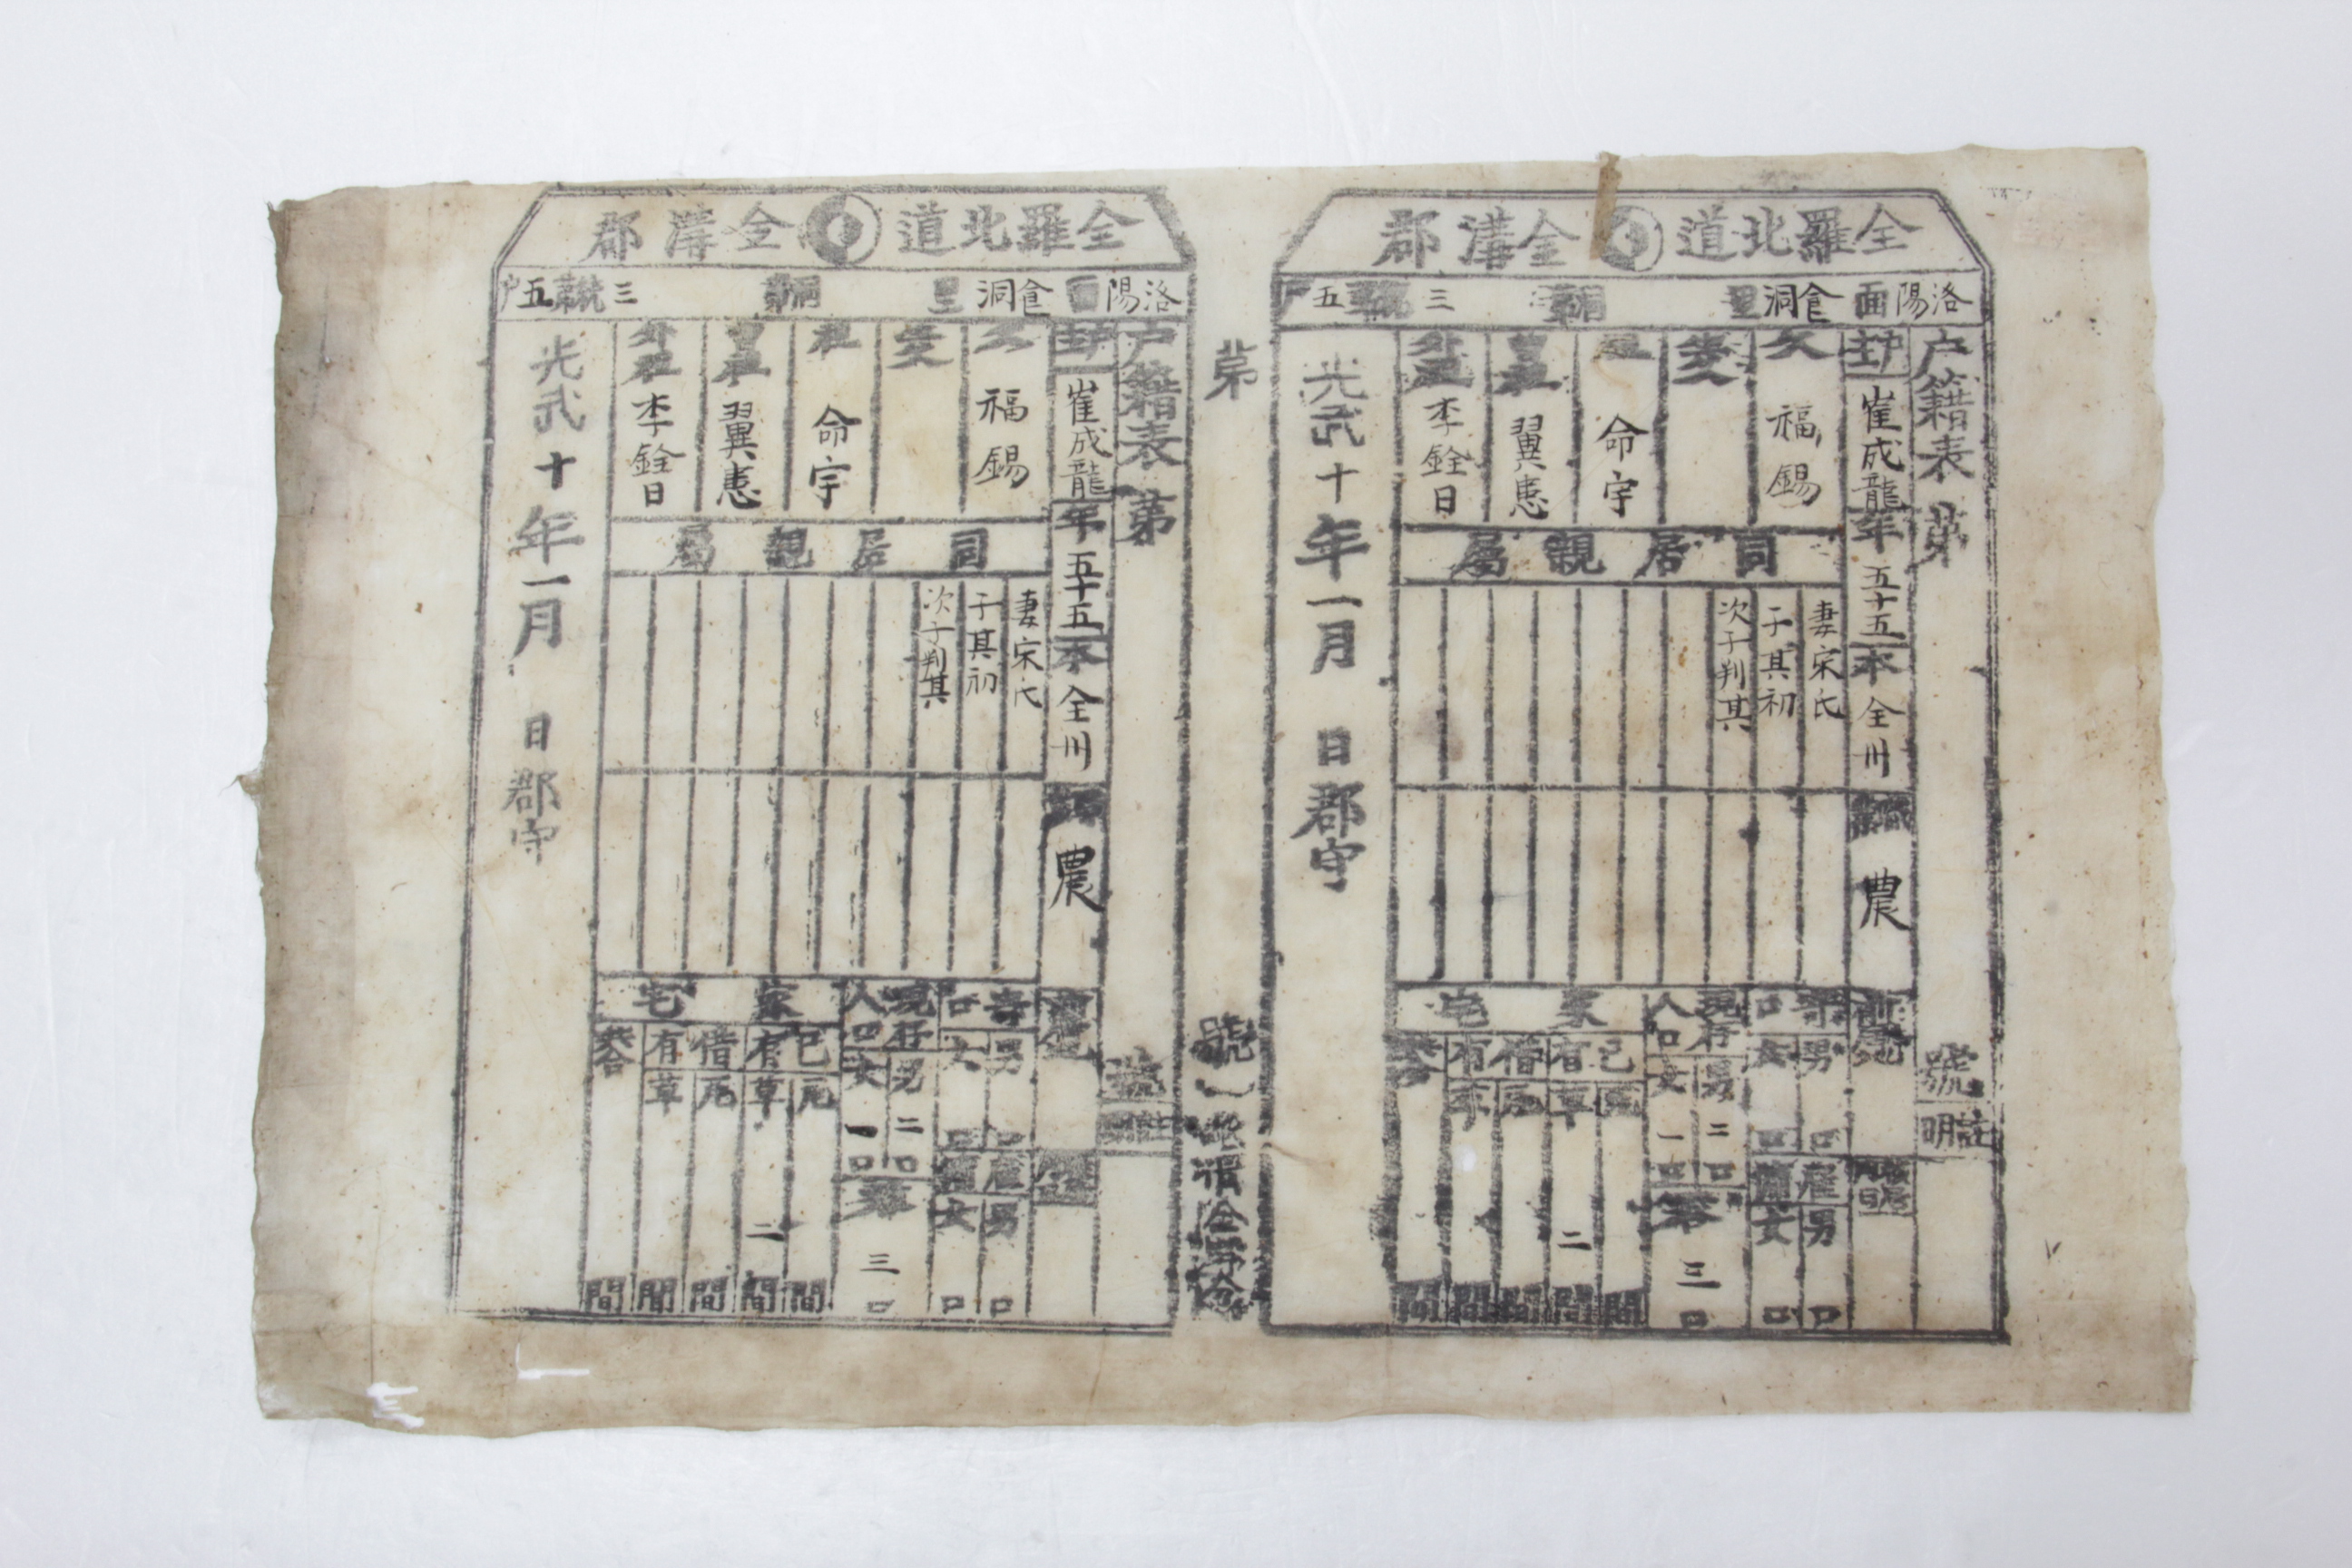 全羅北道 全溝郡
洛陽面 食洞里 統 三 統 五 戶
戶籍表 第 號
戶主 崔成龍 年 五十五 本 全州 職業 農
父 福錫
生父
祖 命宇
曾祖 翼憲
外祖 李銓日
同居親屬
妻宋氏
子其初
次子判其
前居地
寄口 男 口 女 口
雇傭 男 口 女 口
現存人口 男 二口 女 一口
共 三口
家宅
己有 瓦 間 草 二 間
借有 瓦 間 草 間
共合 間
光武十年一月 日 郡守
第 號
全羅北道 全溝郡
洛陽面 食洞里 統 三 統 五 戶
戶籍表 第 號
戶主 崔成龍 年 五十五 本 全州 職業 農
父 福錫
生父
祖 命宇
曾祖 翼憲
外祖 李銓日
同居親屬
妻宋氏
子其初
次子判其
寄口 男 口 女 口
雇傭 男 口 女 口
現存人口 男 二口 女 一口
共 三口
家宅
己有 瓦 間 草 二 間
借有 瓦 間 草 間
共合 間
光武十年一月 日 郡守